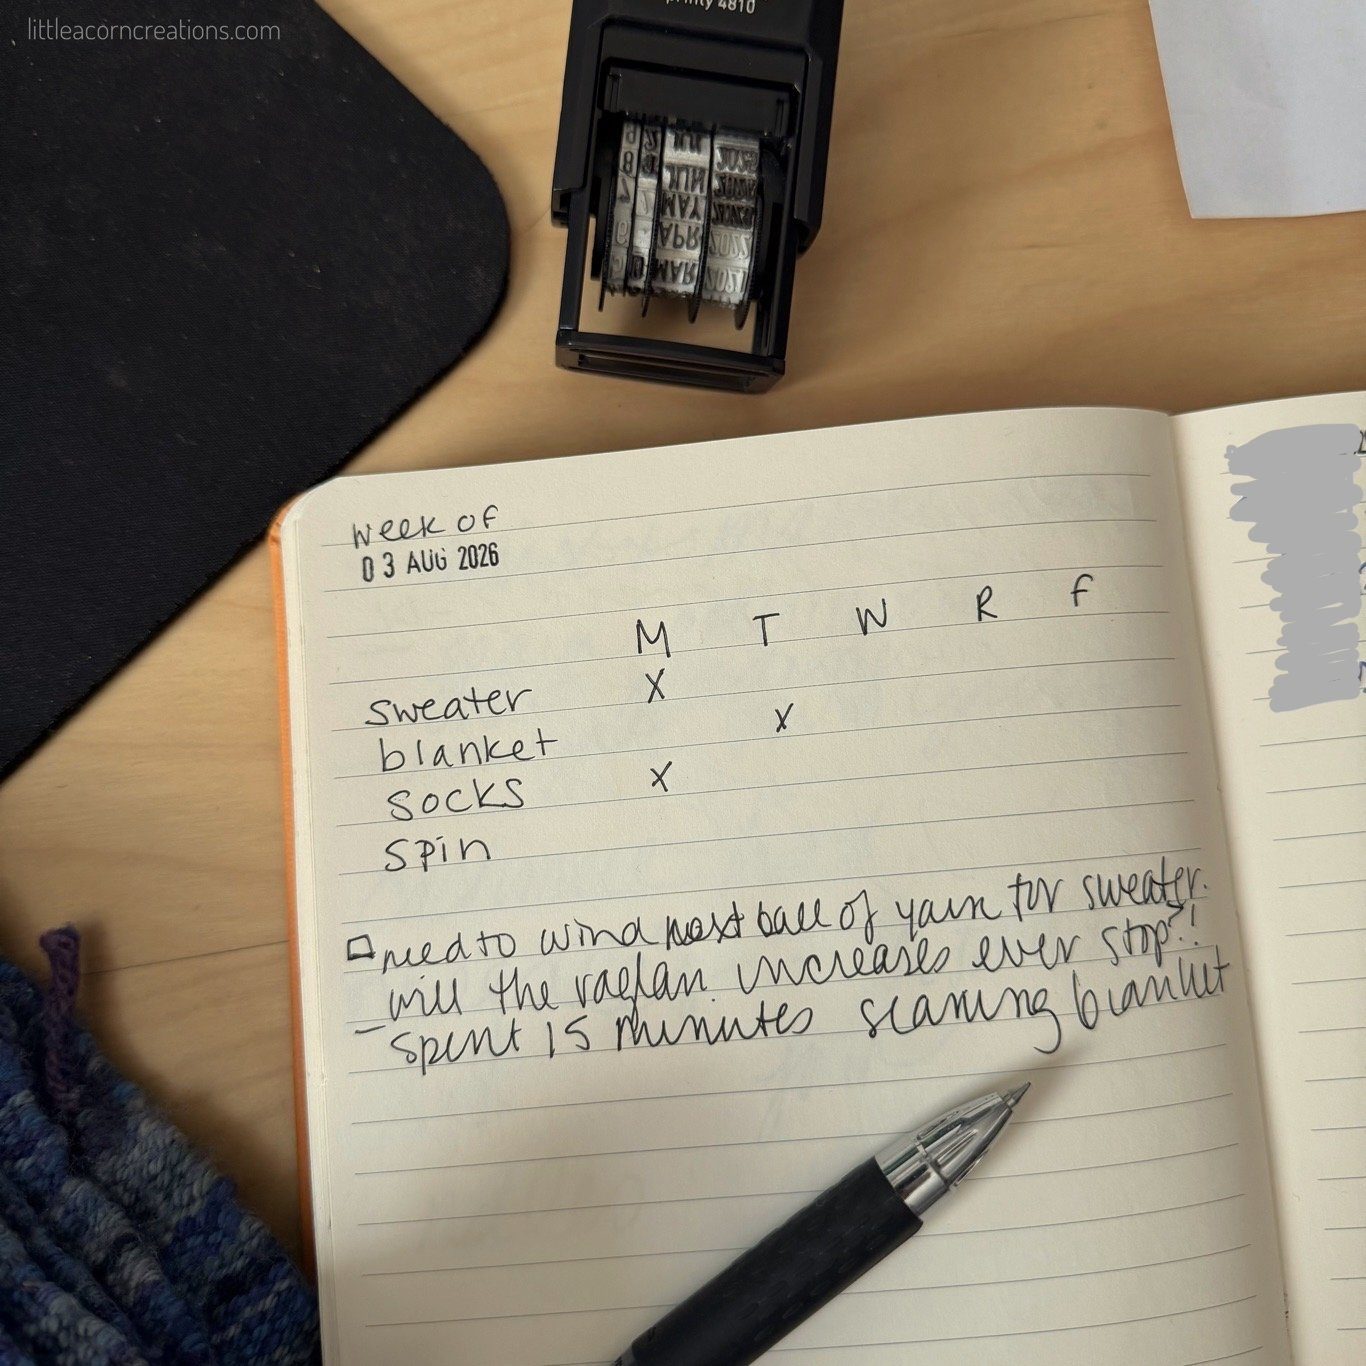 littleacorncreations.com
printy 4810
9 2 JUL 2025
8 JUN 2024
7 MAY 2023
6 APR 2022
5 MAR 2021
week of
03 AUG 2026
M T W R F
sweater X
blanket X
socks X
spin
need to wind next ball of yarn for sweater.
will the raglan increases ever stop?!
- spent 15 minutes seaming blanket